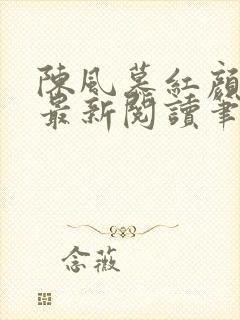 陳風慕紅顏
最新閱讀筆
念薇